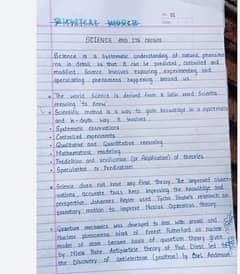 PHYSICAL WORLD
SCIENCE AND ITS ORIGIN
Science is a systematic understanding of natural phenome
na in detail so that it can be predicted, controlled and
modified. Science involves exploring, experimenting and
speculating phenomena happening around us.
• The world Science is derived from a latin word Scientia
meaning 'to know'
• Scientific method is a way to gain knowledge in a systematic
and in-depth way. It involves
• Systematic observations
• Controlled experiments
• Qualitative and Quantitative reasoning
• Mathematical modeling
• Prediction and verification (or falsification) of theories
• Speculation or Prediction
• Science does not have any final theory. The improved observ
vations, accurate tools keep improving the knowledge and
perspective. Johannes Kepler used Tycho Brahe's research on
planetary motion to improve Nicolas Copernicus theory
• Quantum mechanics was developed to deal with atomic and
Nuclear phenomena. Work of Ernest Rutherford on nuclear
model of atom became basis of quantum theory given
by Niels Bohr. Antiparticle theory of Paul Dirac led to
the Discovery of antielectron (positron) by Carl Anderson